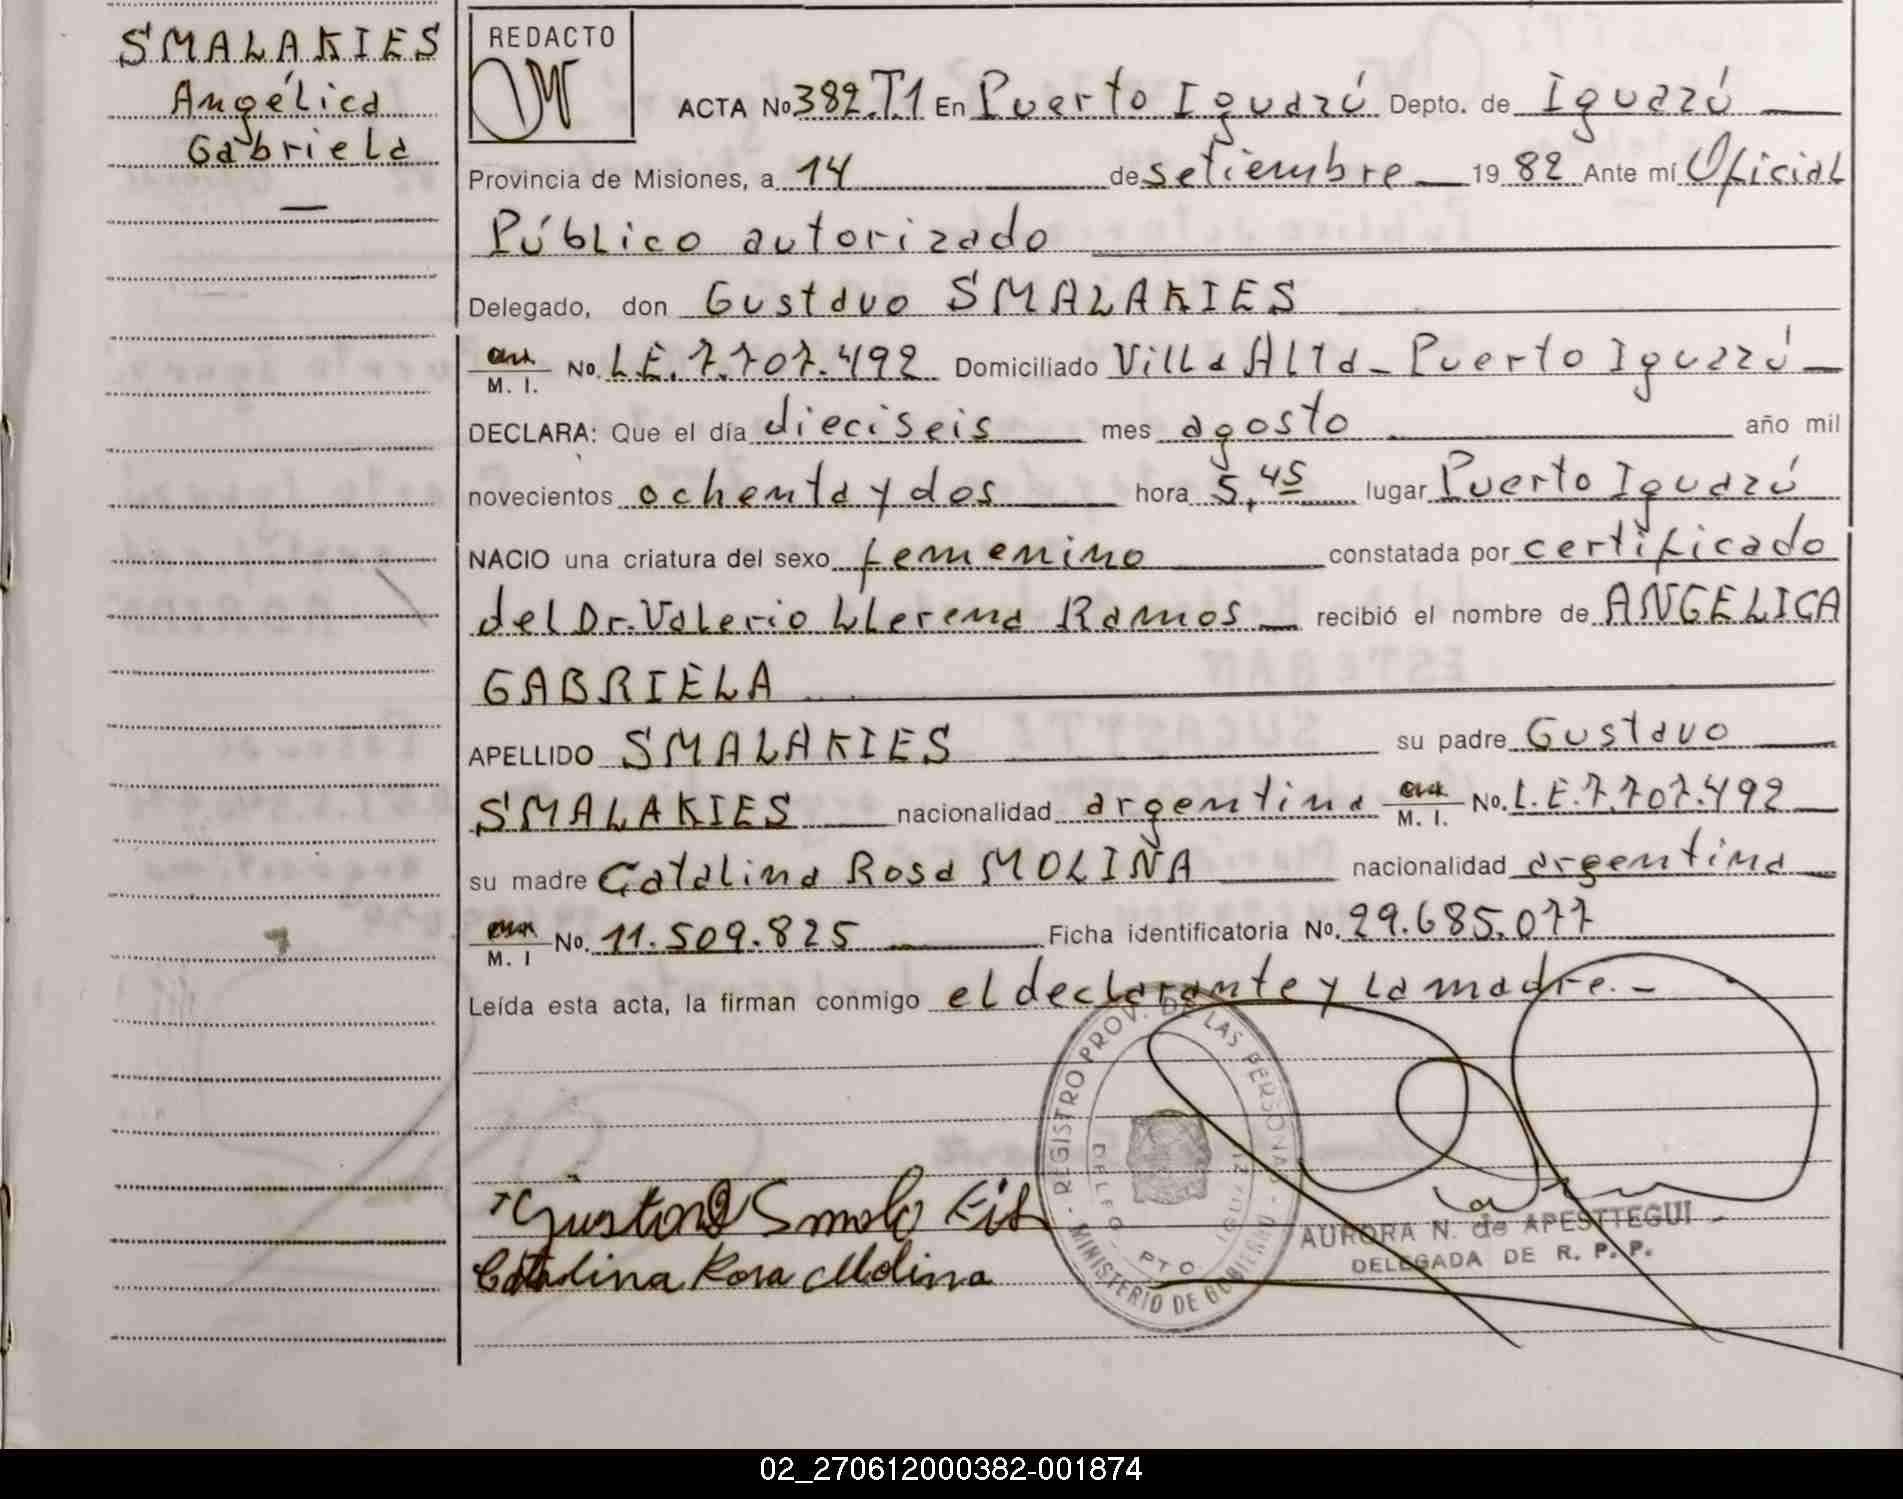 SMALAKIES
Angélica
Gabriela
REDACTO
ACTA No 382.T1 En Puerto Iguazú Depto. de Iguazú
Provincia de Misiones, a 14 de setiembre 19 82 Ante mí Oficial
Público autorizado
Delegado, don Gustavo SMALAKIES
M. I. No. L.E. 7.707.492 Domiciliado Villa Alta - Puerto Iguazú
DECLARA: Que el día dieciseis mes agosto año mil
novecientos ochenta y dos hora 5,45 lugar Puerto Iguazú
NACIO una criatura del sexo femenino constatada por certificado
del Dr. Valerio Llerena Ramos recibió el nombre de ANGELICA
GABRIELA
APELLIDO SMALAKIES su padre Gustavo
SMALAKIES nacionalidad argentina M. I. No. L.E. 7.707.492
su madre Catalina Rosa MOLIÑA nacionalidad argentina
M. I No. 11.509.825 Ficha identificatoria No. 29.685.077
Leída esta acta, la firman conmigo el declarante y la madre. -
REGISTRO PROV. DE LAS PERSONAS - MINISTERIO DE GOBIERNO
PTO
Catalina Rosa Molina
AURORA N. de APESTTEGUI
DELEGADA DE R. P. P.
02_270612000382-001874